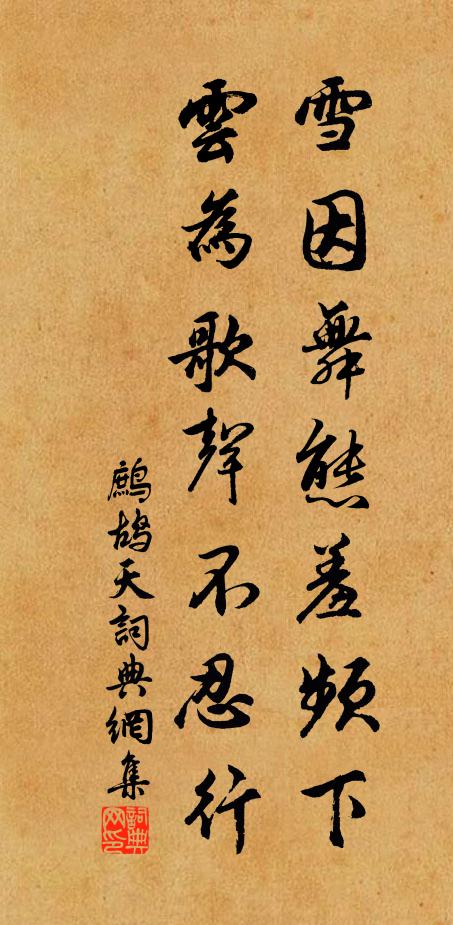 雪因舞態羞頻下
雲為歌聲不忍行
鷓鴣天詞典網集
詞典
网印